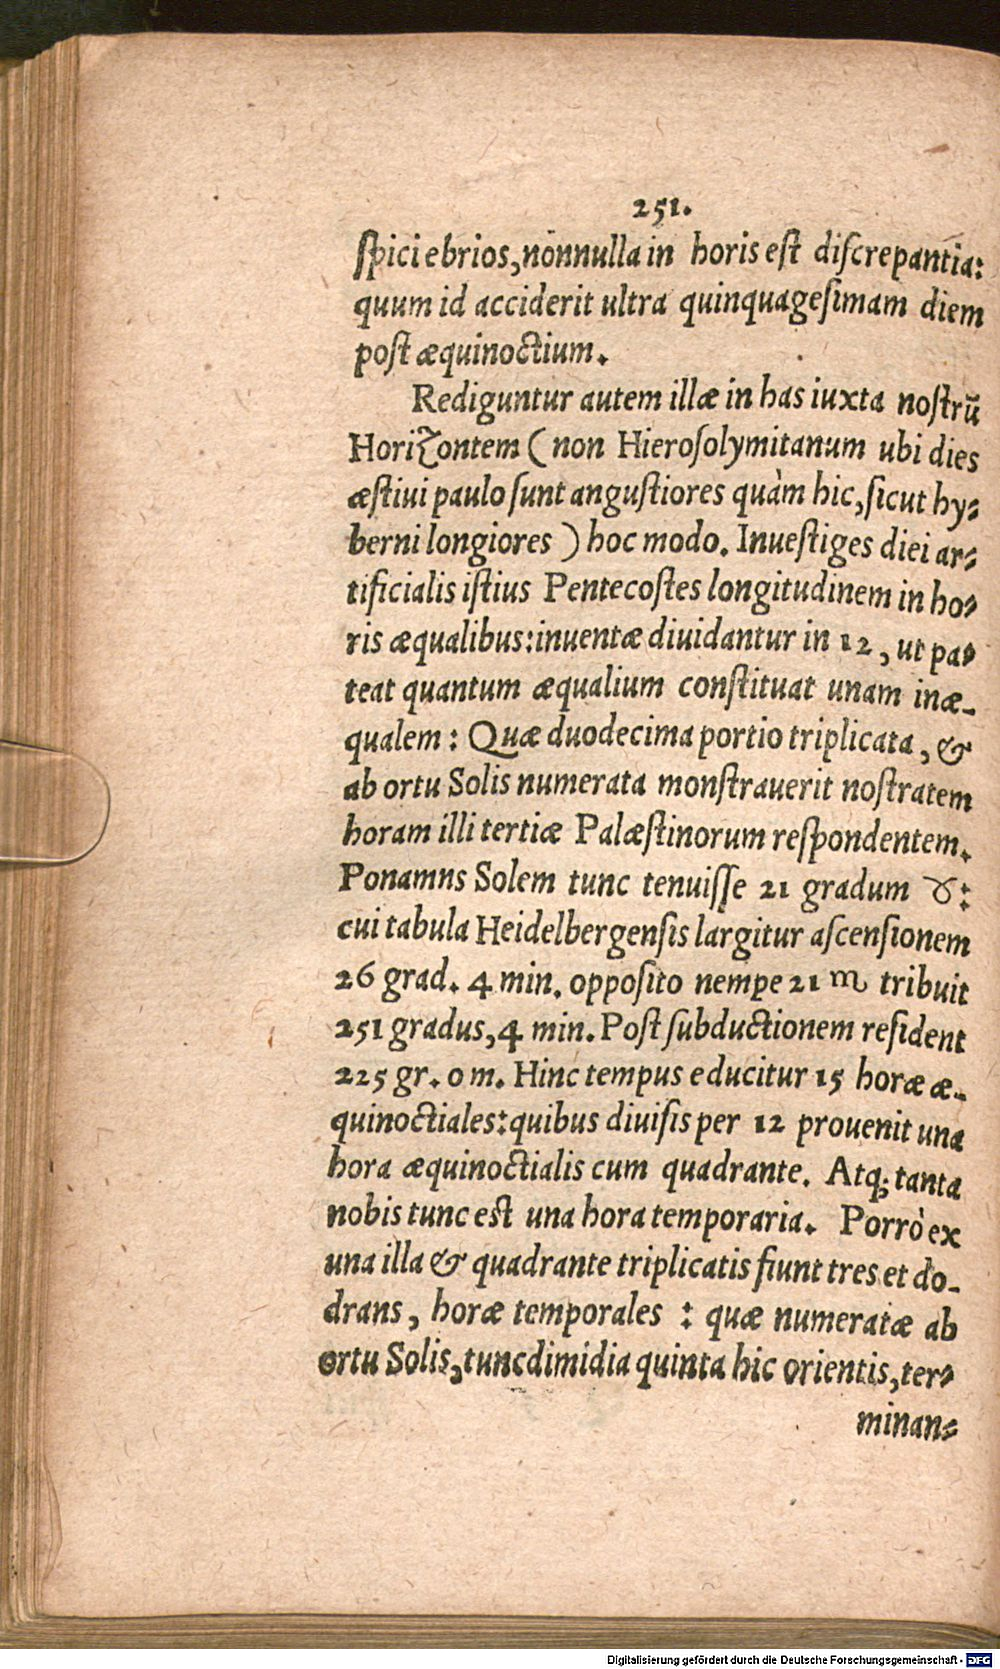 251.
ſpici ebrios, nònnulla in horis eſt diſcrepantia:
quum id acciderit ultra quinquageſimam diem
poſt æquinoctium.
Rediguntur autem illæ in has iuxta noſtrū
Horizontem (non Hieroſolymitanum ubi dies
æſtiui paulo ſunt anguſtiores quàm hic, ſicut hy-
berni longiores) hoc modo. Inueſtiges diei ar-
tificialis iſtius Pentecoſtes longitudinem in ho-
ris æqualibus: inuentæ diuidantur in 12, ut pa-
teat quantum æqualium conſtituat unam inæ-
qualem: Quæ duodecima portio triplicata, &
ab ortu Solis numerata monſtrauerit noſtratem
horam illi tertiæ Palæſtinorum reſpondentem.
Ponamns Solem tunc tenuiſſe 21 gradum ♉:
cui tabula Heidelbergenſis largitur aſcenſionem
26 grad. 4 min. oppoſito nempe 21 ♏ tribuit
251 gradus, 4 min. Poſt ſubductionem reſident
225 gr. 0 m. Hinc tempus educitur 15 horæ æ-
quinoctiales: quibus diuiſis per 12 prouenit una
hora æquinoctialis cum quadrante. Atq; tanta
nobis tunc eſt una hora temporaria. Porrò ex
una illa & quadrante triplicatis fiunt tres et do-
drans, horæ temporales: quæ numeratæ ab
ortu Solis, tunc dimidia quinta hic orientis, ter-
minan-
Digitalisierung gefördert durch die Deutsche Forschungsgemeinschaft - DFG